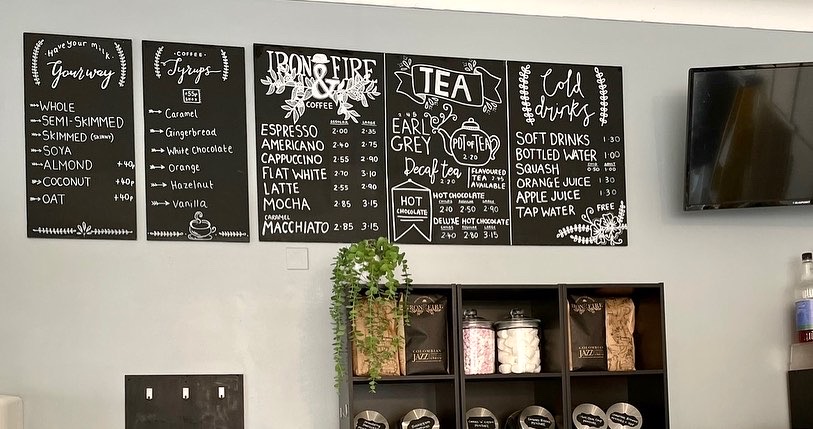 Have your milk
Your way
WHOLE
SEMI-SKIMMED
SKIMMED (SKINNY)
SOYA
ALMOND +40p
COCONUT +40p
OAT +40p
COFFEE
Syrups
+55p
Caramel
Gingerbread
White Chocolate
Orange
Hazelnut
Vanilla
IRON & FIRE
COFFEE
REGULAR LARGE
ESPRESSO 2·00 2·35
AMERICANO 2·40 2·75
CAPPUCCINO 2·55 2·90
FLAT WHITE 2·70 3·10
LATTE 2·55 2·90
MOCHA 2·85 3·15
CARAMEL
MACCHIATO 2·85 3·15
TEA
2·45
EARL GREY
POT OF TEA
2·20
Decaf tea
2·20
FLAVOURED
TEA 2·45
AVAILABLE
HOT
CHOCOLATE
HOT CHOCOLATE
CHILDS REGULAR LARGE
2·10 2·50 2·90
DELUXE HOT CHOCOLATE
CHILDS REGULAR LARGE
2·40 2·80 3·15
Cold
drinks
SOFT DRINKS 1·30
BOTTLED WATER 1·00
SQUASH 0·50 1·00
ORANGE JUICE 1·30
APPLE JUICE 1·30
TAP WATER FREE
IRON & FIRE
COLOMBIAN
JAZZ
IRON & FIRE
COLOMBIAN
JAZZ